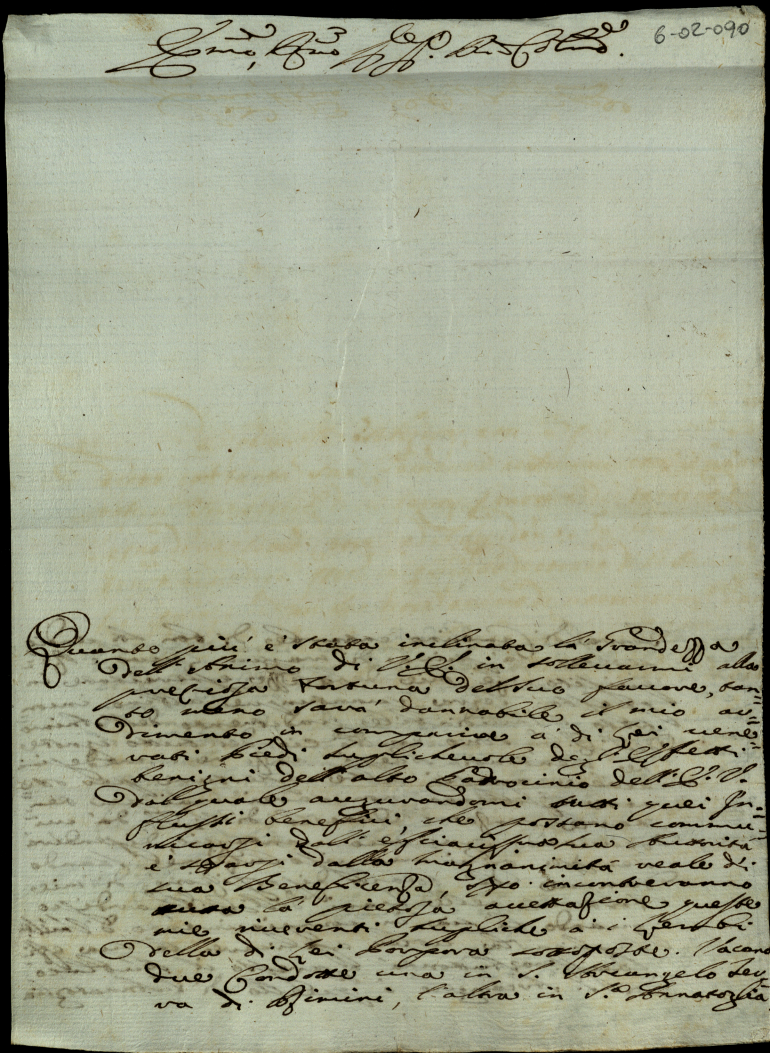 6-02-090
Em̃o, Rm̃o
Quanto più è stata inclinata la Grandezza
dell'Animo di V. E. in solleuarmi alla
preziosa fortuna del suo fauore, tan=
to meno sarà dannabile il mio ar=
dimento in comparire a' di Lei uene=
rati piedi supplicheuole degl'Effetti
benigni dell'alto Padrocinio dell'E. V.
dal quale augurandomi tutti quei In=
flussi benefici, che possano commu=
nicarsi dall' sua Autorità
è sparsi dalla magnanimità reale di
sua Beneficenza, incontreranno
la pietosa accettazione queste
mie riuerenti suppliche à i Lembi
della di Lei Porpora sottoposte. Vacano
due Condotte una in S. Arcangelo Ter=
ra di Rimini, l'altra in S.ª